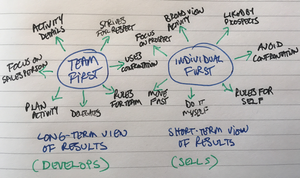 ACTIVITY
DETAILS
STRIVES
FOR RESPECT
BROAD VIEW
ACTIVITY
LIKED BY
PROSPECTS
FOCUS ON
SALESPERSON
TEAM
FIRST
USES
CONFRONTATION
FOCUS
ON PROSPECT
INDIVIDUAL
FIRST
AVOID
CONFRONTATION
PLAN
ACTIVITY
DELEGATES
RULES
FOR TEAM
MOVE
FAST
DO IT
MYSELF
RULES FOR
SELF
LONG-TERM VIEW
OF RESULTS
(DEVELOPS)
SHORT-TERM VIEW
OF RESULTS
(SELLS)